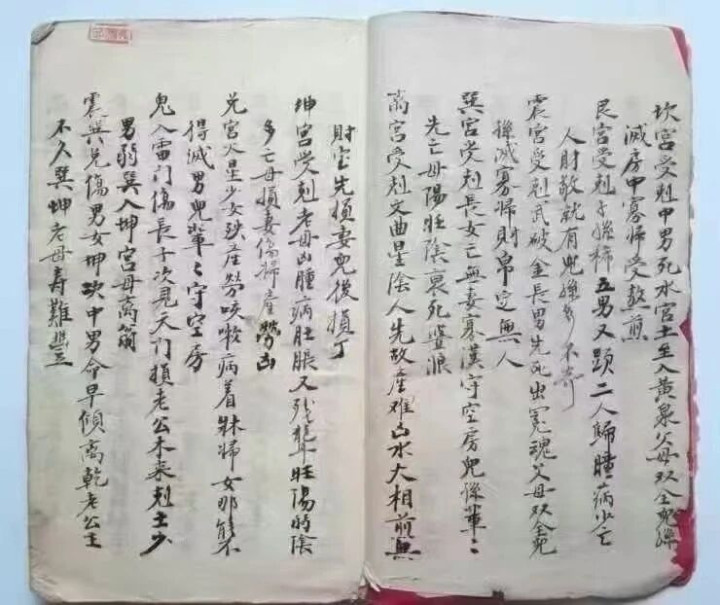 坎宫受剋中男死水宫土星入黄泉父母双全兒孫
滅房中寡婦受熬煎
艮宫受剋子孫稀五男又顕二人歸瞳病少亡
人財散就有兒孫多不奇
震宫受剋武破金長男先死出冤魂父母双全兒
孫滅寡婦財帛定無人
巽宫受剋長女亡無妻寡漢守空房兒孫輩〻
先亡母陽旺陰衰死蓝浪
离宫受剋文曲星陰人先故産难凶水火相煎無
財宝先損妻兒後損丁
坤宫受剋老母凶腫病肚脹又残聾旺陽時陰
多亡母損妻傷婦産勞凶
兑宫火星少女殃産勞咳嗽病着牀婦女那能不
得滅男兒輩〻守空房
鬼入雷门傷長子次見天门損老公木来剋土少
男弱巽入坤宫母离翁
震與兑傷男女坤坎中男命早傾离乾老公主
不久巽坤老母寿難